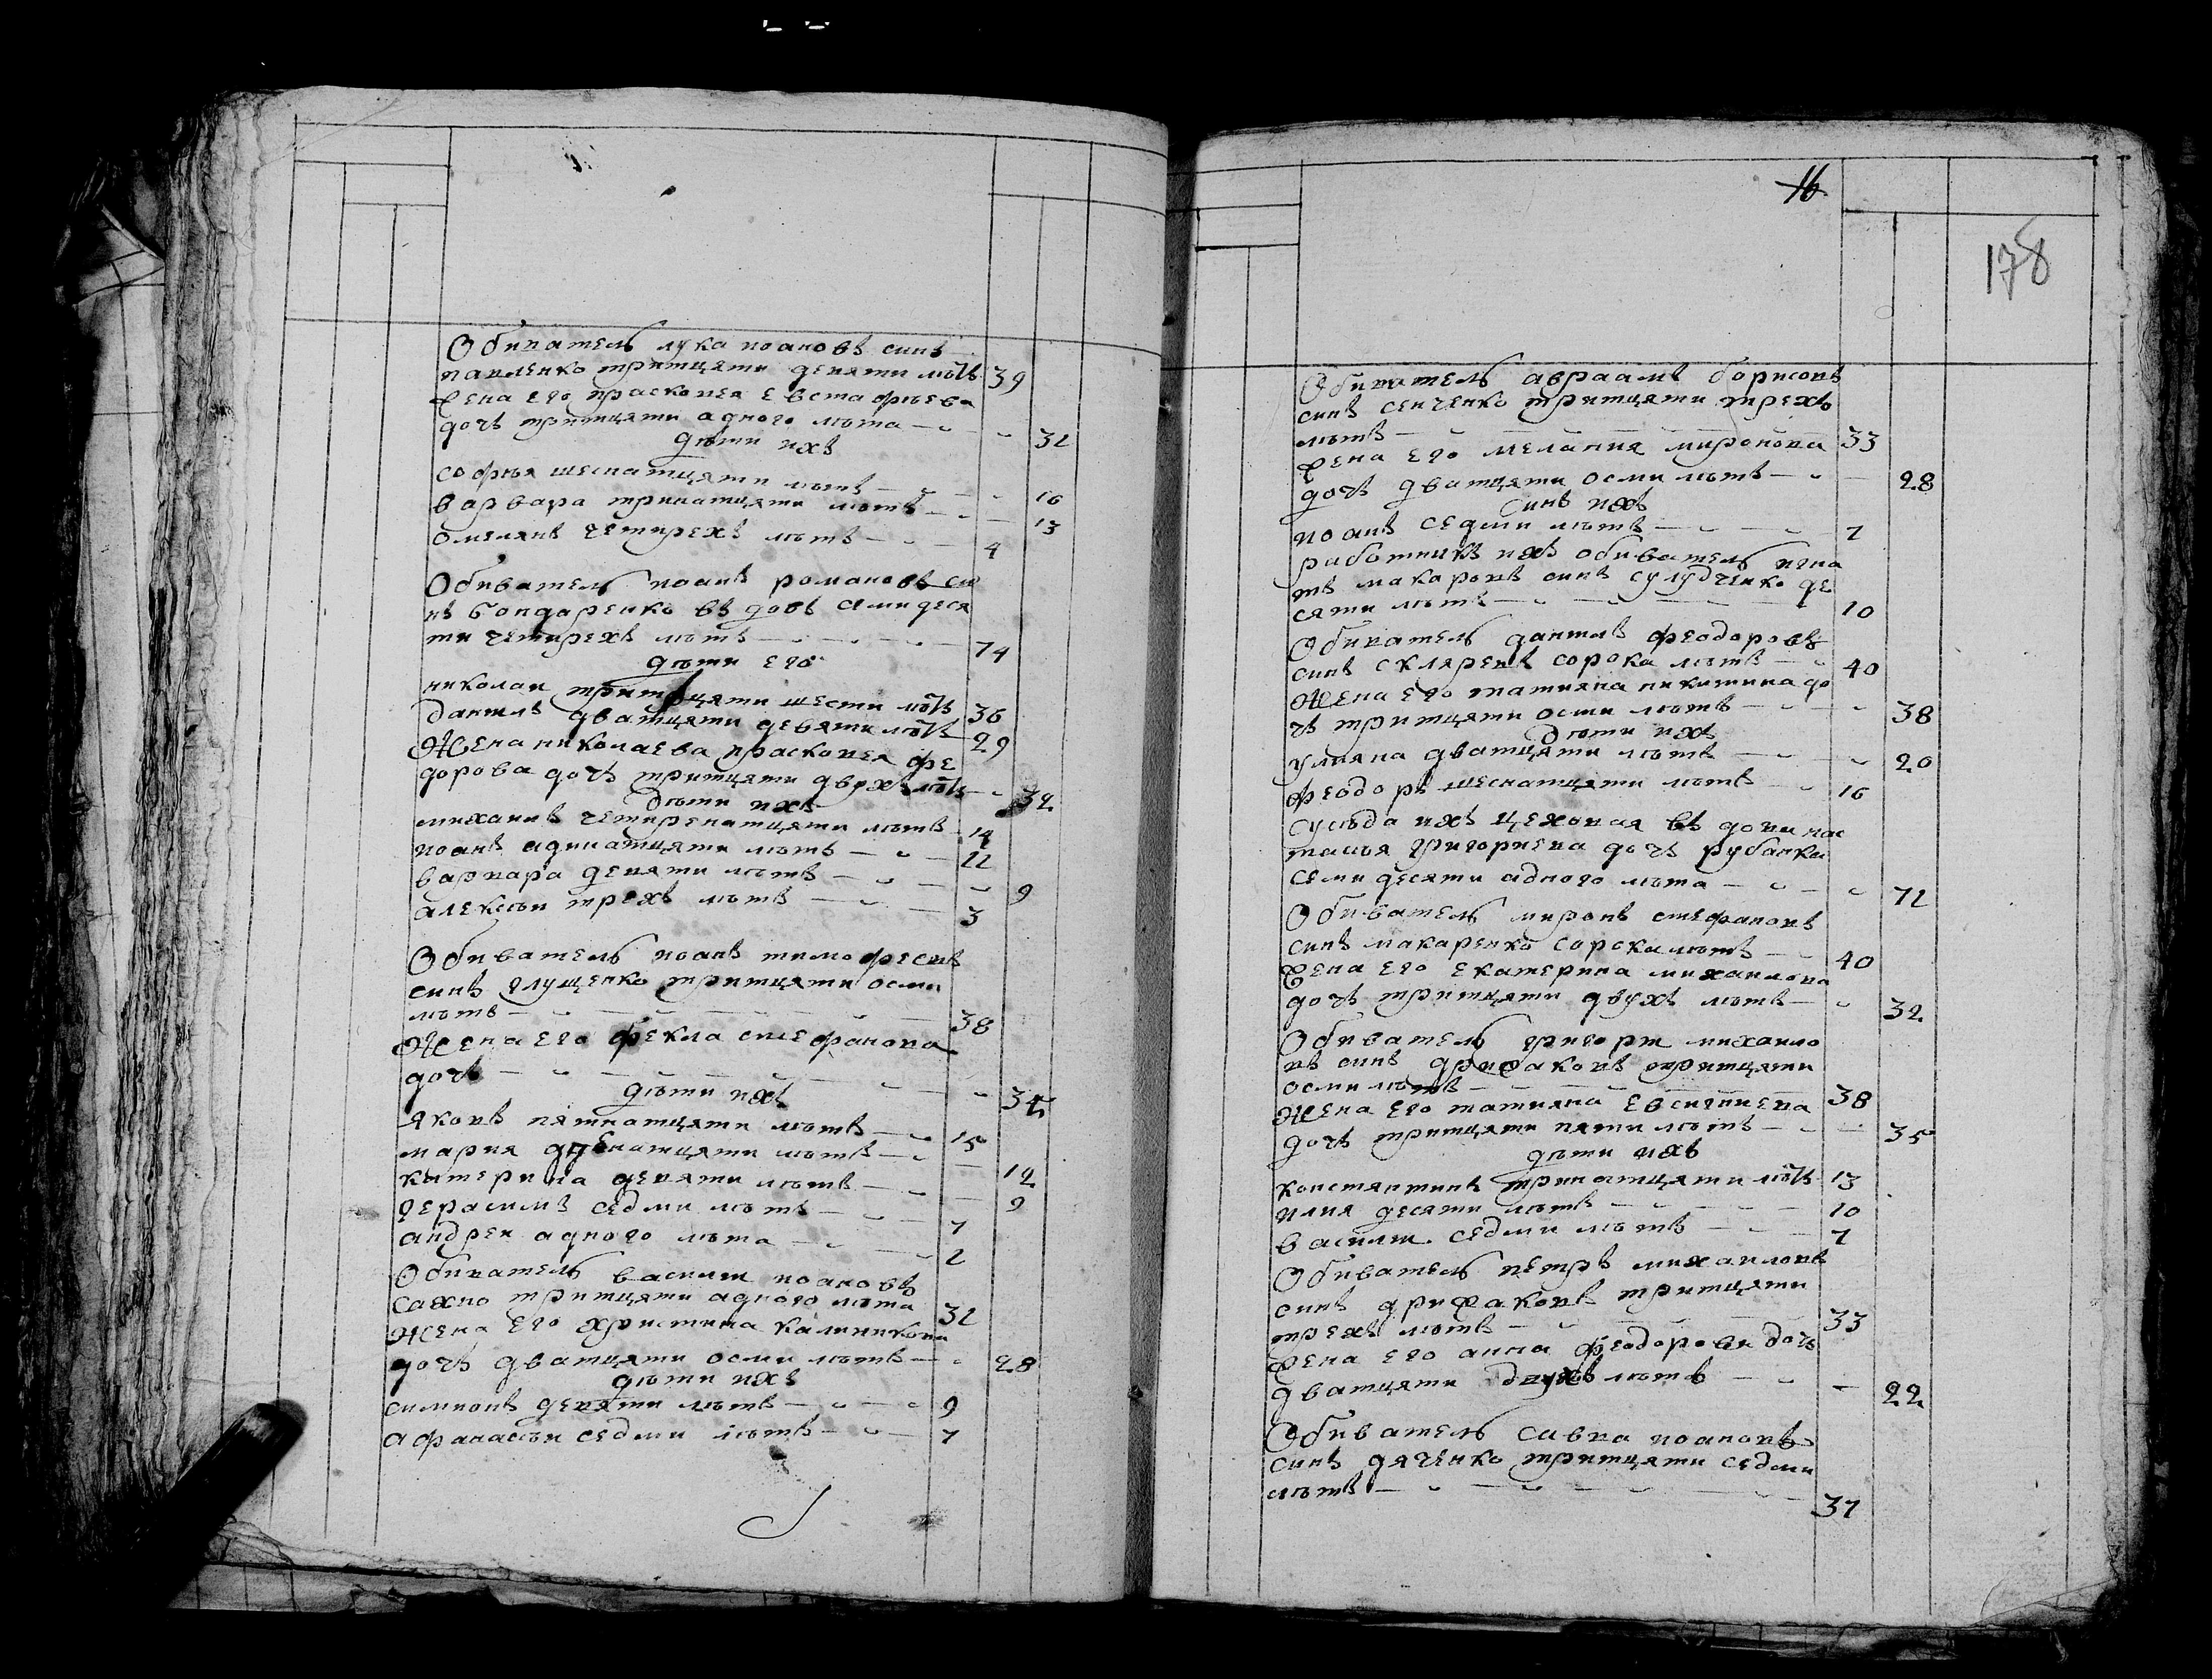 Обиватель лука иоановъ синъ
павленко тритцяти девяти лѣтъ 39
Жена его прасковея евстафѣева
дочъ тритцяти адного лѣта 31
дѣти ихъ
софѣя шеснатцяти лѣтъ 16
варвара тринатцяти лѣтъ 13
омелянъ четирехъ лѣтъ 4
Обиватель иоанъ романовъ си
нъ бондаренко въ довъ семидеся
ти четирехъ лѣтъ 74
дѣти его
николаи тритцяти шести лѣтъ 36
данилъ дватцяти девяти лѣтъ 29
Жена николаева прасковея фе
дорова дочъ тритцяти двухъ лѣтъ 32
дѣти ихъ
михаилъ четиренатцяти лѣтъ 14
иоанъ адинатцяти лѣтъ 11
варвара девяти лѣтъ 9
алексѣи трехъ лѣтъ 3
Обиватель иоанъ тимофеевъ
синъ глущенко тритцяти осми
лѣтъ 38
Жена его фекла стефанова
дочъ 34
дѣти ихъ
яковъ пятнатцяти лѣтъ 15
мария двенатцяти лѣтъ 12
катерина девяти лѣтъ 9
герасимъ седми лѣтъ 7
андреи адного лѣта 1
Обиватель василии иоановъ
сахно тритцяти адного лѣта 31
Жена его христина калиникова
дочъ дватцяти осми лѣтъ 28
дѣти ихъ
симионъ девяти лѣтъ 9
афанасѣи седми лѣтъ 7
16
178
Обиватель авраамъ борисовъ
синъ сенченко тритцяти трехъ
лѣтъ 33
Жена его мелания миронова
дочъ дватцяти осми лѣтъ 28
синъ ихъ
иоанъ седми лѣтъ 7
работникъ ихъ обиватель игна
тъ макаровъ синъ сулудченко де
сяти лѣтъ 10
Обиватель данилъ феодоровъ
синъ скляренъ сорока лѣтъ 40
Жена его татияна никитина до
чъ тритцяти осми лѣтъ 38
дѣти ихъ
уляна дватцяти лѣтъ 20
феодоръ шеснатцяти лѣтъ 16
сусѣда ихъ цеховая въ дови нас
тасѣя григориева дочъ рубанка
семидесяти адного лѣта 71
Обиватель миронъ стефановъ
синъ макаренко сорока лѣтъ 40
Жена его екатерина михаилова
дочъ тритцяти двухъ лѣтъ 32
Обиватель григории михаило
въ синъ тритцяти
осми лѣтъ 38
Жена его татияна евсигниева
дочъ тритцяти пяти лѣтъ 35
дѣти ихъ
константинъ тринатцяти лѣтъ 13
илия десяти лѣтъ 10
василии седми лѣтъ 7
Обиватель петръ михаиловъ
синъ тритцяти
трехъ лѣтъ 33
Жена его анна феодорова дочъ
дватцяти двухъ лѣтъ 22
Обиватель савва иоановъ
синъ дяченко тритцяти седми
лѣтъ 37